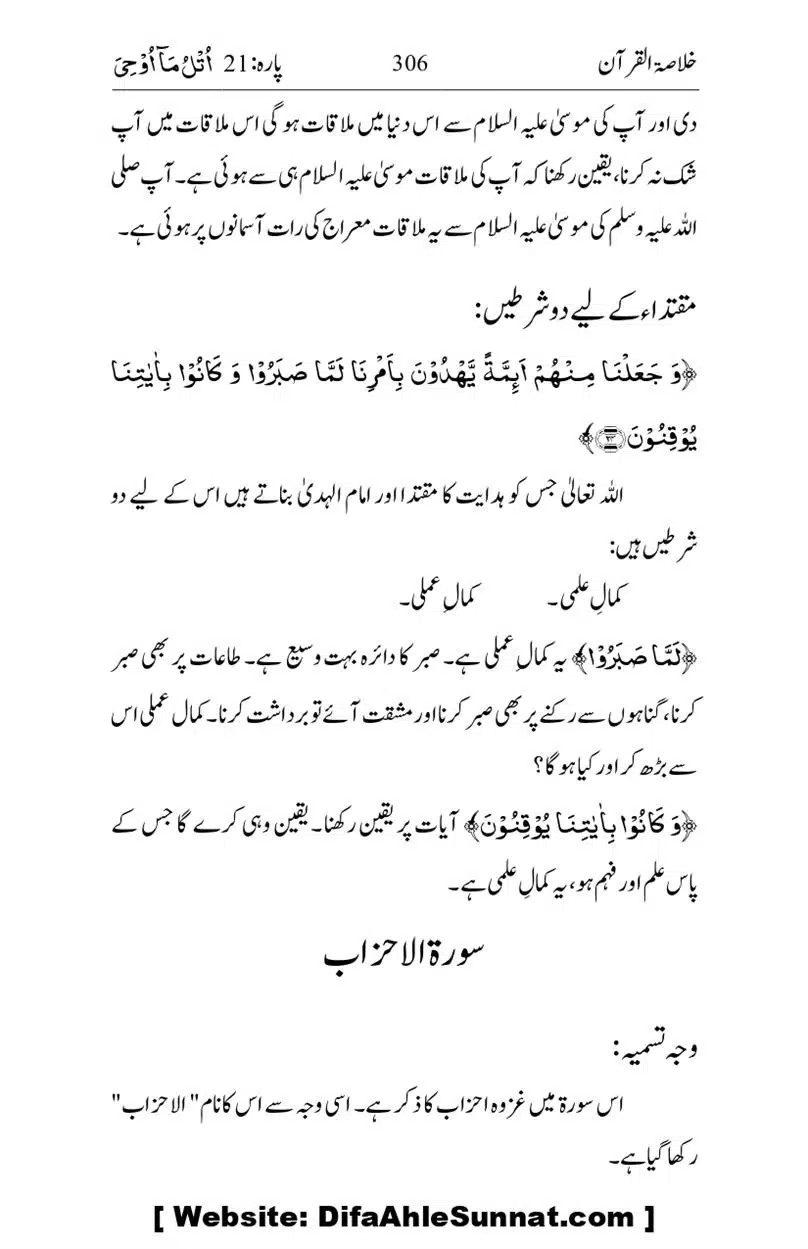 خلاصۃ القرآن 306 پارہ: 21 اُتْلُ مَآ اُوْحِیَ
دی اور آپ کی موسیٰ علیہ السلام سے اس دنیا میں ملاقات ہو گی اس ملاقات میں آپ
شک نہ کرنا، یقین رکھنا کہ آپ کی ملاقات موسیٰ علیہ السلام ہی سے ہوئی ہے۔ آپ صلی
اللہ علیہ وسلم کی موسیٰ علیہ السلام سے یہ ملاقات معراج کی رات آسمانوں پر ہوئی ہے۔
مقتداء کے لیے دو شرطیں:
﴿وَ جَعَلْنَا مِنْهُمْ اَئِمَّةً یَّهْدُوْنَ بِاَمْرِنَا لَمَّا صَبَرُوْا وَ كَانُوْا بِاٰیٰتِنَا
یُوْقِنُوْنَ ﴿۲۴﴾﴾
اللہ تعالیٰ جس کو ہدایت کا مقتدا اور امام الہدیٰ بناتے ہیں اس کے لیے دو
شرطیں ہیں:
کمالِ علمی۔ کمالِ عملی۔
﴿لَمَّا صَبَرُوْا﴾ یہ کمالِ عملی ہے۔ صبر کا دائرہ بہت وسیع ہے۔ طاعات پر بھی صبر
کرنا، گناہوں سے رکنے پر بھی صبر کرنا اور مشقت آئے تو برداشت کرنا۔ کمال عملی اس
سے بڑھ کر اور کیا ہو گا؟
﴿وَ كَانُوْا بِاٰیٰتِنَا یُوْقِنُوْنَ﴾ آیات پر یقین رکھنا۔ یقین وہی کرے گا جس کے
پاس علم اور فہم ہو، یہ کمالِ علمی ہے۔
سورۃ الاحزاب
وجہ تسمیہ:
اس سورۃ میں غزوہ احزاب کا ذکر ہے۔ اسی وجہ سے اس کا نام "الاحزاب"
رکھا گیا ہے۔
[ Website: DifaAhleSunnat.com ]